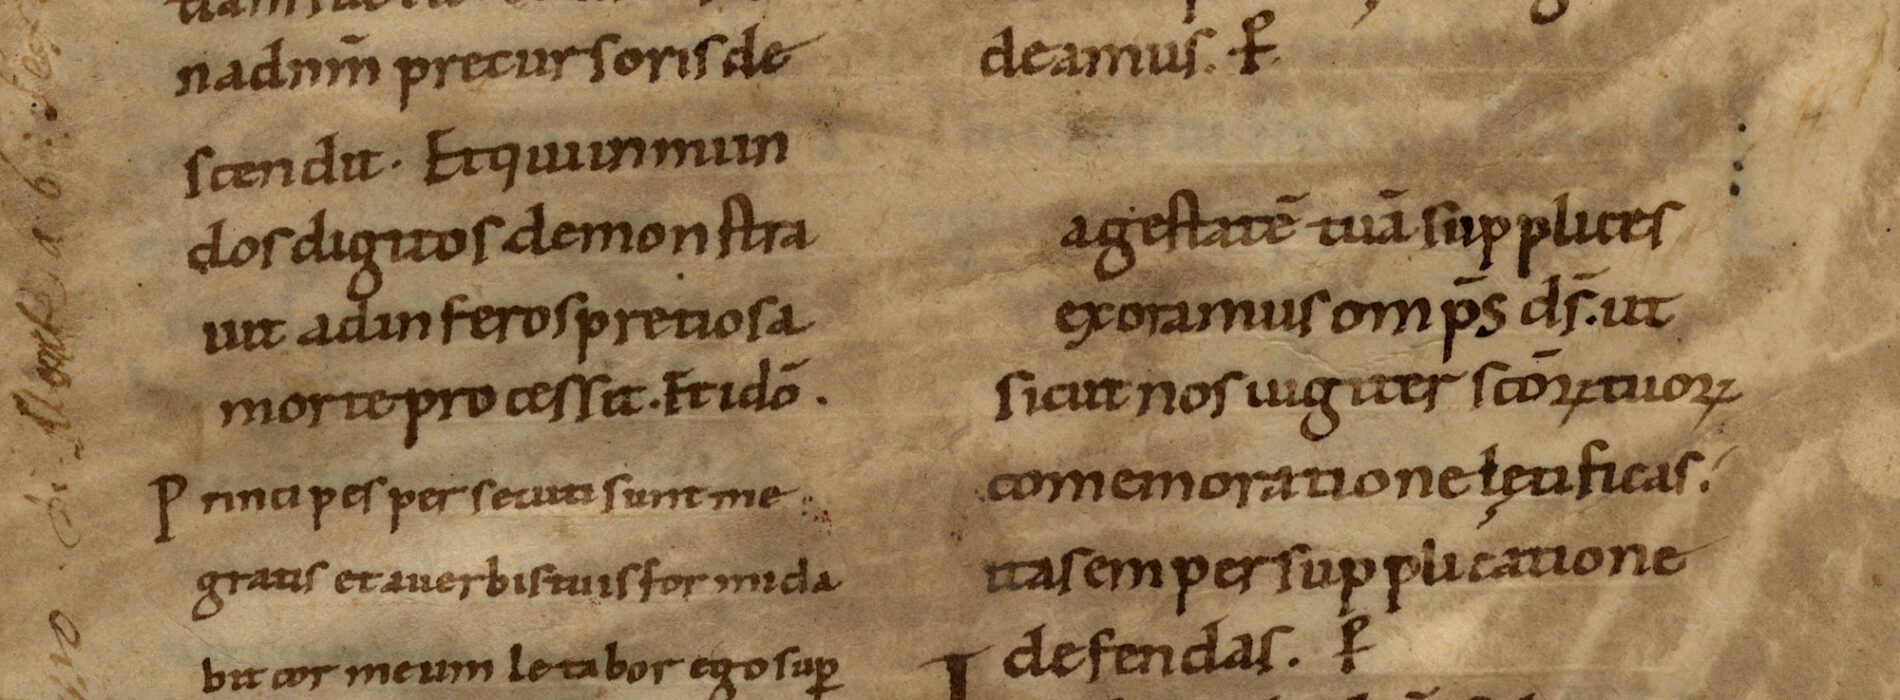 nadnm̄ precursoris de
scendit. Et qui in mun
dos digitos demonstra
uit ad inferos pretiosa
morte processit. Et idō.
Principes persecuti sunt me
gratis et a uerbis tuis formida
bit cor meum letabor ego sup̱
deamus. p̱
agestatē tuā supplices
exoramus omp̄s ds̄. ut
sicut nos iugiter scō𝈵 tuoꝝ
comemoratione lętificas.
ita semper supplicatione
defendas. p̱